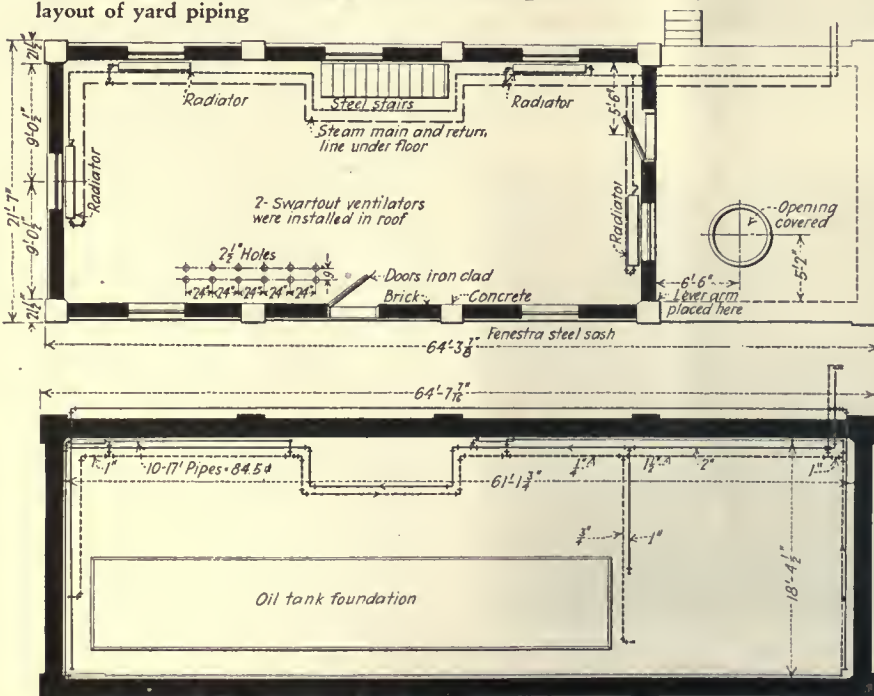 layout of yard piping
21½"
9'-0½"
21'-7"
9'-0½"
21½"
Radiator
Steel stairs
Radiator
5'-6"
Steam main and return
line under floor
Radiator
2-Swartout ventilators
were installed in roof
Radiator
Opening
covered
5'-2"
2½" Holes
9"
24" 24" 24" 24" 24"
Doors iron clad
Brick
Concrete
6'-6"
Lever arm
placed here
Fenestra steel sash
64'-3⅞"
64'-7 7/16"
1"
10-17' Pipes • 84.5
61'-1¾"
1½"
2"
1"
¾"
1"
18'-4½"
Oil tank foundation